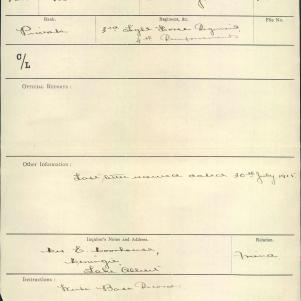 Rank. Regiment, &c. File No.
Private 3rd Light Horse Regiment
7th Reinforcements
C/L
OFFICIAL REPORTS :
Other Information :
Last letter received dated 30th July 1915.
Inquirer's Name and Address. Relation.
Meningie, Friend
Lake Albert
Instructions :
Base Records